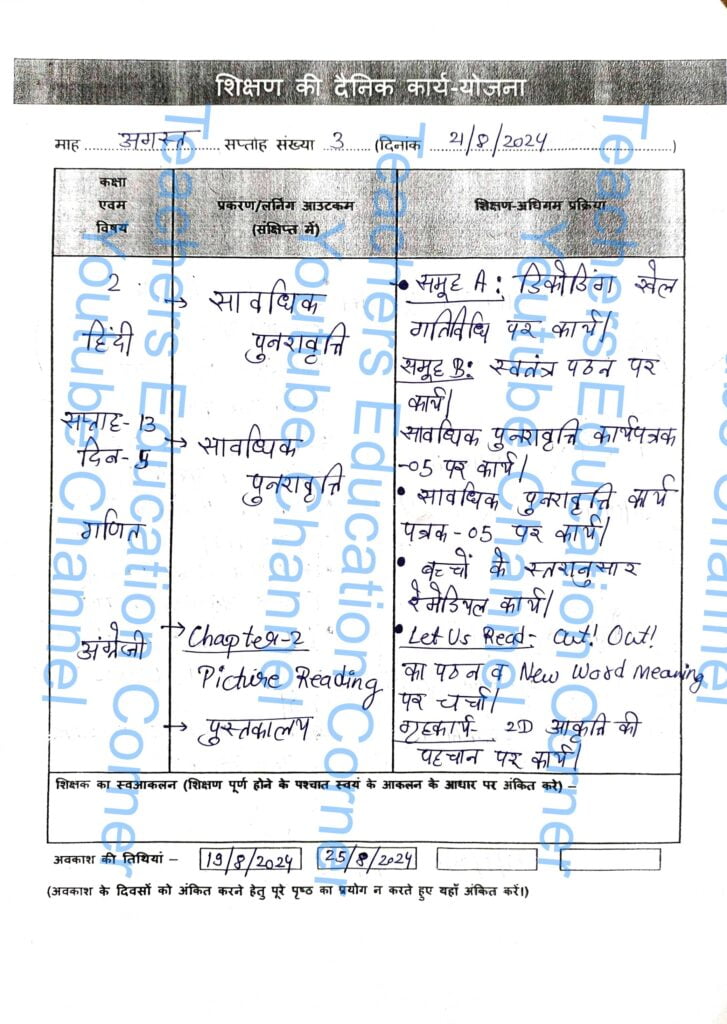 शिक्षण की दैनिक कार्य-योजना
माह ..... अगस्त ..... सप्ताह संख्या 3 ..... (दिनांक ..... 21/8/2024 .....)
कक्षा
एवम
विषय
प्रकरण/लर्निग आउटकम
(संक्षिप्त में)
शिक्षण-अधिगम प्रक्रिया
2
हिंदी
सप्ताह- 13
दिन- 4
गणित
अंग्रेजी
→ सावधिक
पुनरावृत्ति
→ सावधिक
पुनरावृत्ति
→ Chapter-2
Picture Reading
→ पुस्तकालय
• समूह A: डिकोडिंग खेल
गतिविधि पर कार्य।
समूह B: स्वतंत्र पठन पर
कार्य।
सावधिक पुनरावृत्ति कार्यपत्रक
-05 पर कार्य।
• सावधिक पुनरावृत्ति कार्य
पत्रक-05 पर कार्य।
• बच्चों के स्तरानुसार
रेमेडियल कार्य।
• Let Us Read- Out! Out!
का पठन व New Word Meaning
पर चर्चा।
गृहकार्य- 2D आकृति की
पहचान पर कार्य।
शिक्षक का स्वआकलन (शिक्षण पूर्ण होने के पश्चात स्वयं के आकलन के आधार पर अंकित करे) –
अवकाश की तिथियां – 19/8/2024 25/8/2024
(अवकाश के दिवसों को अंकित करने हेतु पूरे पृष्ठ का प्रयोग न करते हुए यहाँ अंकित करें।)
Teachers Education Corner
Youtube Channel
Teachers Education Corner
Youtube Channel
Teachers Education Corner
Youtube Channel